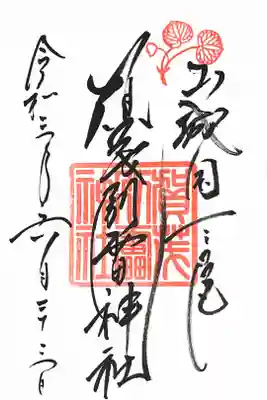 山城国一之宮
賀茂別雷神社
令和三年六月
賀茂
別雷
神社